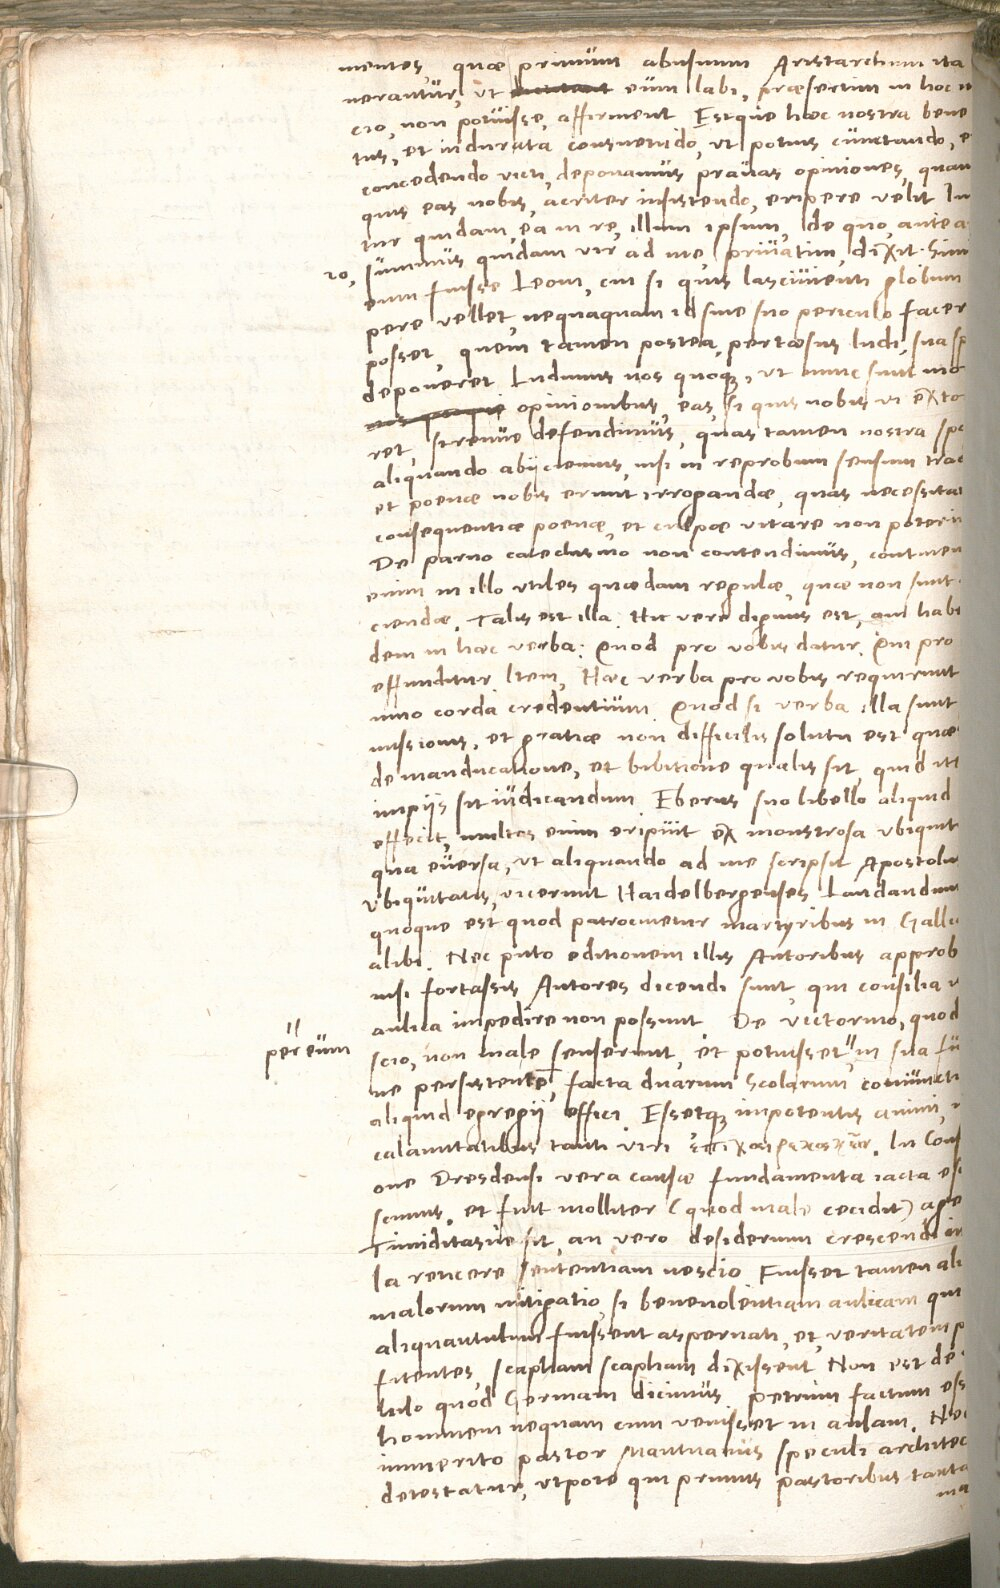 mentes, quæ primum abusum Aristarchum ita
nerantur, ut eum labi, præsertim in hoc n
cio, non potuisse, affirment Estque hæc nostra bene
tus, et indurata consuetudo, ut potius cunctando, e
concedendo victi, deponamus prauas opiniones, quam
quis eas nobis, acriter insistendo, eripere velit In
tur quidam, ea in re, illum ipsum, de quo, antea
10, summus quidam vir ad me, priuatim, dixit. Simi
eum fuisse Leoni, cui si quis lasciuienti globum
pere vellet, nequaquam id sine suo periculo facer
posset, quem tamen postea, pertæsus ludi, sua sp
deponeret Ludimus nos quoque, ut nunc sunt mo
opinionibus, eas, si quis nobis vi exto
ret, strenue defendimus, quas tamen nostra spo
aliquando abijciemus, nisi in reprobum sensum trad
et poenæ nobis erunt irrogandæ, quas necessitat
consequentiæ poenæ, et culpæ vitare non poterim
De paruo catechismo non contendimus, continen
enim in illo vtiles quædam regulæ, quæ non sunt
ciendæ. Talis est illa. Hic vere dignus est, qui habe
dem in hæc verba: Quod pro vobis datur. Qui pro
effunditur Item, Hæc verba pro vobis requirunt
nino corda credentium. Quod si verba illa sunt
missionis, et gratiæ non difficilis solutu est quæ
de manducatione, et bibitione qualis sit, quid it
impijs sit iudicandum Eberus suo libello aliquid
effecit, multos enim eripuit ex monstrosa vbiquit
qua euersa, ut aliquando ad me scripsit Apostolus
vbiquitatis, vicerunt Haidelbergenses Laudandum
quoque est quod patrocinetur martyribus in Gallia
alibi. Nec puto editionem illis Autoribus approb
nisi fortassis Autores dicendi sunt, qui consilia
aulica impedire non possunt De Victorino, quod
per eum
scio, non male senserunt, et potuisset in sua fu
ne persistente, facta duarum Scolarum coniuncti
aliquid egregij effici Essetque impotentis animi,
calamitatibus tanti viri In Conf
one Dresdensi vera causæ fundamenta iacta es
scimus, et fuit molliter (quod male cecidit) age
Timiditasne sit, an vero desiderium crescendi in
la rencere sententiam nescio Fuisset tamen ali
malorum mitigatio, si beneuolentiam aulicam qui
aliquantulum fuissent aspernati, et, veritatem p
fitentes, scapham scapham dixissent Non est de
hilo quod Germani dicimus, petrum factum ess
hominem nequam cum venisset in aulam. Nec
immerito pastor Mantuanus speculi architec
detestatur, utpote qui primus pastoribus tanta
ma